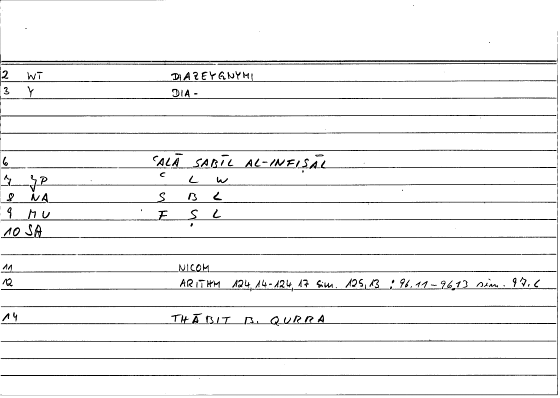 2 WT DIAZEYGNYMI
3 Y DIA-
6 ʿALĀ SABĪL AL-INFIṢĀL
7 ʿ L W
8 NA S B L
9 MU F Ṣ L
10 SA
11 NICOM
12 ARITHM 124,14-124,17 sim. 125,13 : 96.11-96,13 sim. 97.6
14 THĀBIT B. QURRA